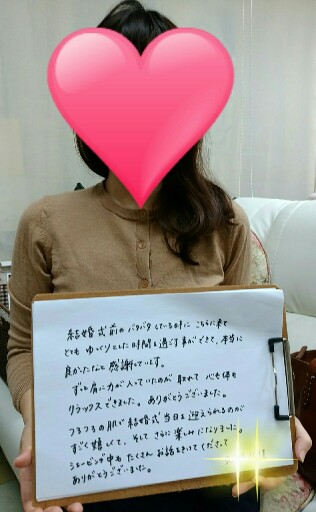 結婚式前のバタバタしている時に こちらに来て
とても ゆっくりとした時間を過ごす事ができて、本当に
良かったなと 感謝しています。
ずっと肩に力が入っていたのが 取れて 心も体も
リラックスできました。 ありがとうございました。
つるつるの肌で 結婚式当日を 迎えられるのが
すごく嬉しくて、そして さらに 楽しみになりました。
シェービング中も たくさん お話をきいてくださって
ありがとうございました。